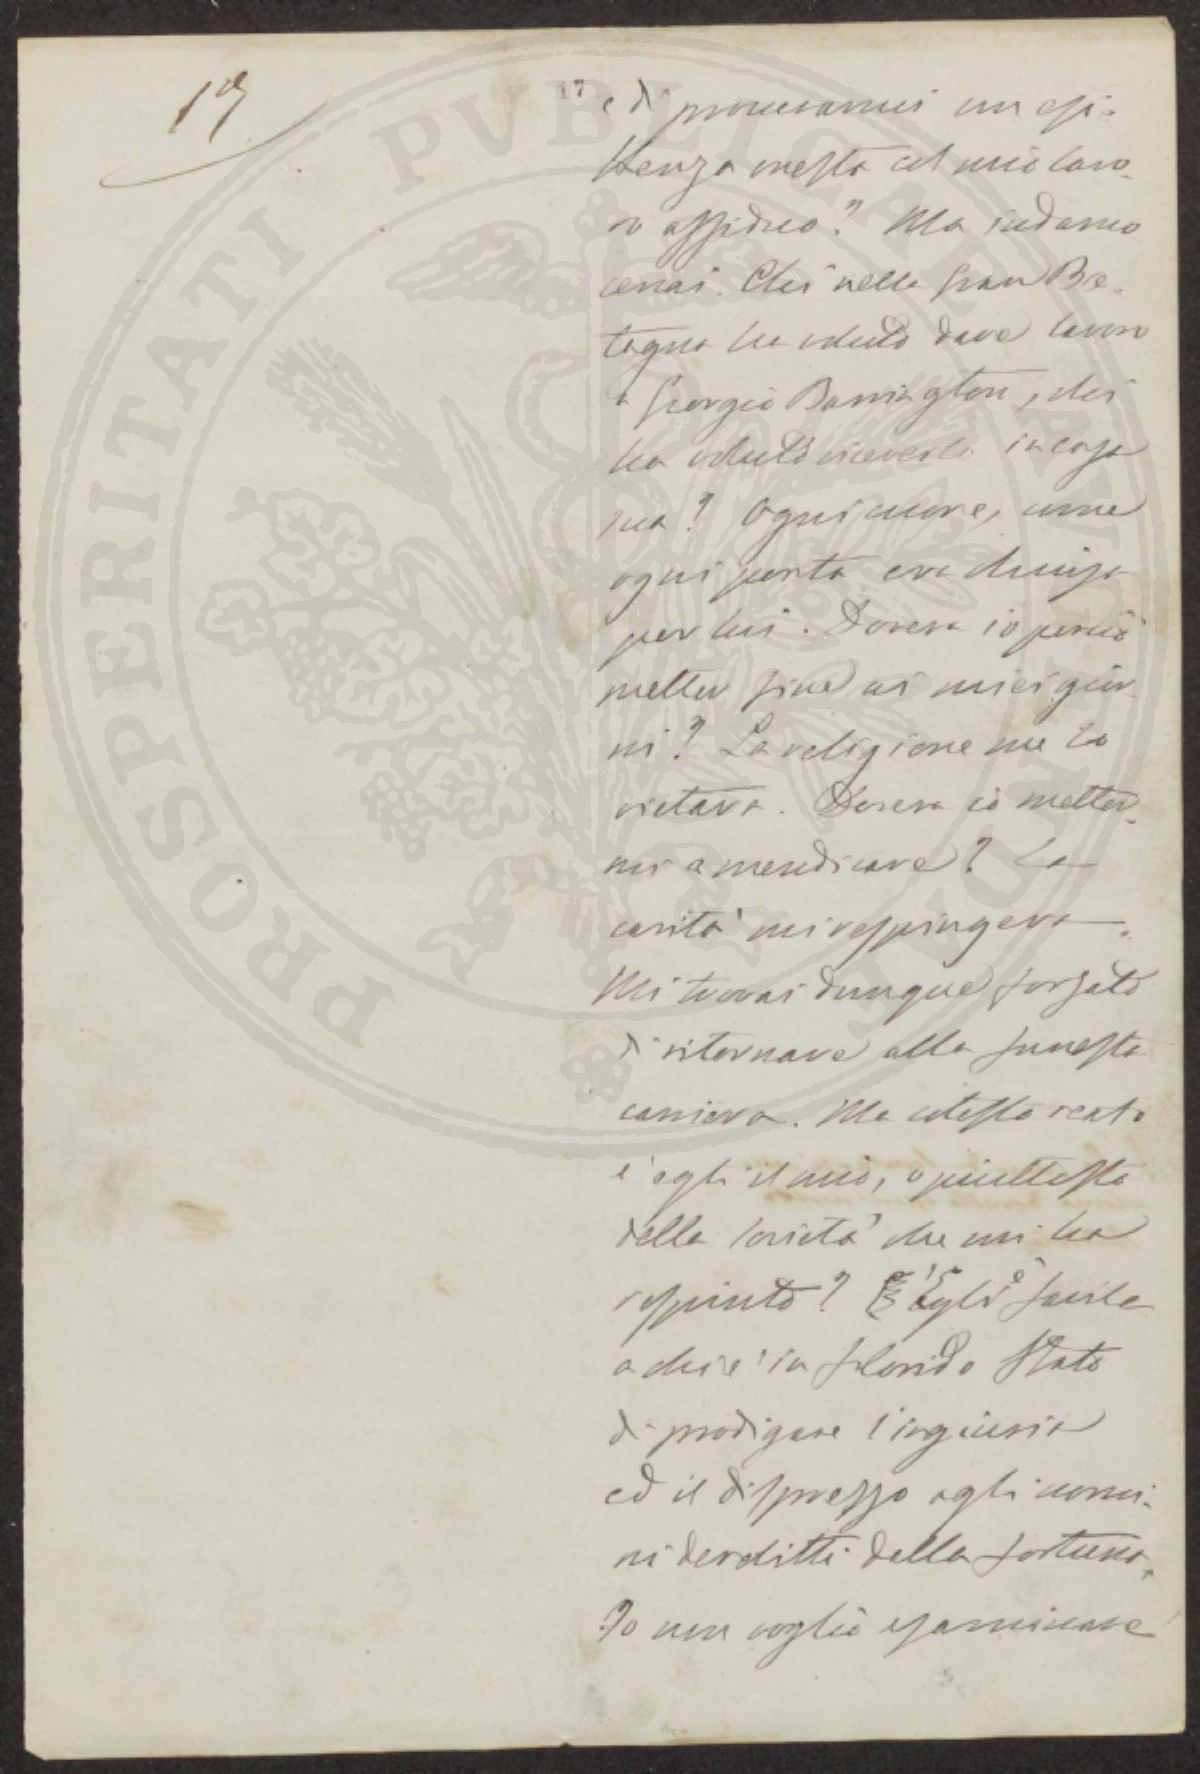 17
17
PROSPERITATI PVBLICAE AVGENDAE
e di procurarmi un esi-
stenza onesta col mio lavo-
ro assiduo? Ma indarno
cercai. Chi nella Gran Bre-
tagna ha voluto dare lavoro
a Giorgio Barrington, chi
ha voluto riceverlo in casa
sua? Ogni cuore, come
ogni porta era chiusa
per lui. Doveva io perciò
metter fine ai miei gior-
ni? La religione me lo
vietava. Doveva io metter-
mi a mendicare? La
carità mi respingeva.
Mi trovai dunque forzato
di ritornare alla funesta
carriera. Ma cotesto reato
è egli il mio, o piuttosto
della società che mi ha
respinto? Egli è facile
a chi è in florido stato
di prodigare l'ingiuria
ed il disprezzo agli uomi-
ni derelitti dalla fortuna.
Io non voglio esaminare